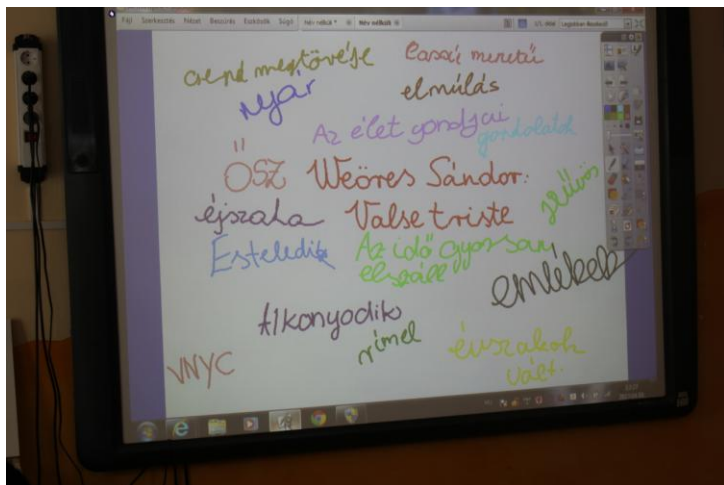 Fájl Szerkesztés Nézet Beszúrás Eszközök Súgó
Név nélkül * Név nélküli
csend megtörése
Lassú menetű
nyár
elmúlás
Az élet gondjai
gondolatok
ŐSZ Weöres Sándor:
hűvös
éjszaka Valse triste
Esteledik Az idő gyorsan
elszáll
emlékek
Alkonyodik
rímel
VNYC
évszakok
vált.